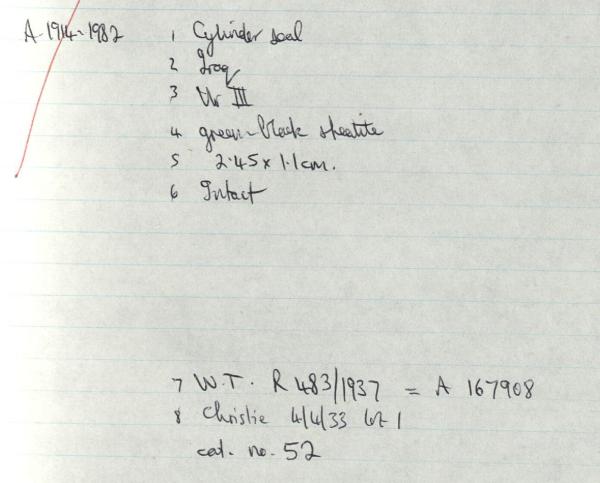 A-1914-1982 1 Cylinder seal
2 Iraq
3 Ur III
4 green-black steatite
5 2.45 x 1.1 cm.
6 Intact
7 W.T. R 483/1937 = A 167908
8 Christie 4/4/33 lot 1
cat. no. 52